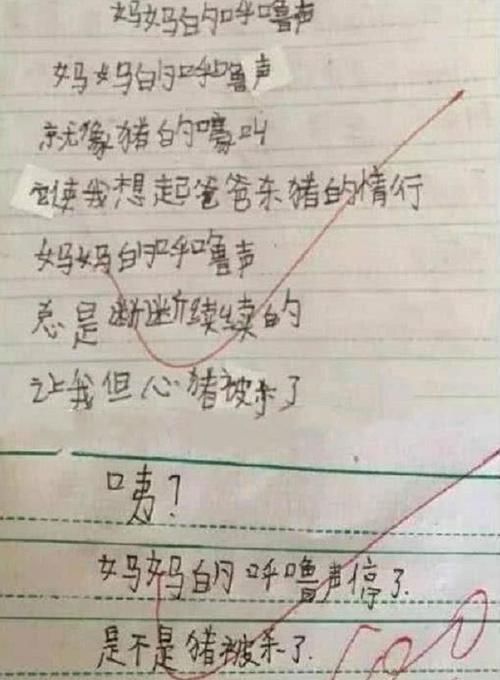 妈妈的呼噜声
妈妈的呼噜声
就像猪的嚎叫
使我想起爸爸杀猪的情行
妈妈的呼噜声
总是断断续续的
让我但心猪被杀了
咦？
妈妈的呼噜声停了.
是不是猪被杀了.
100